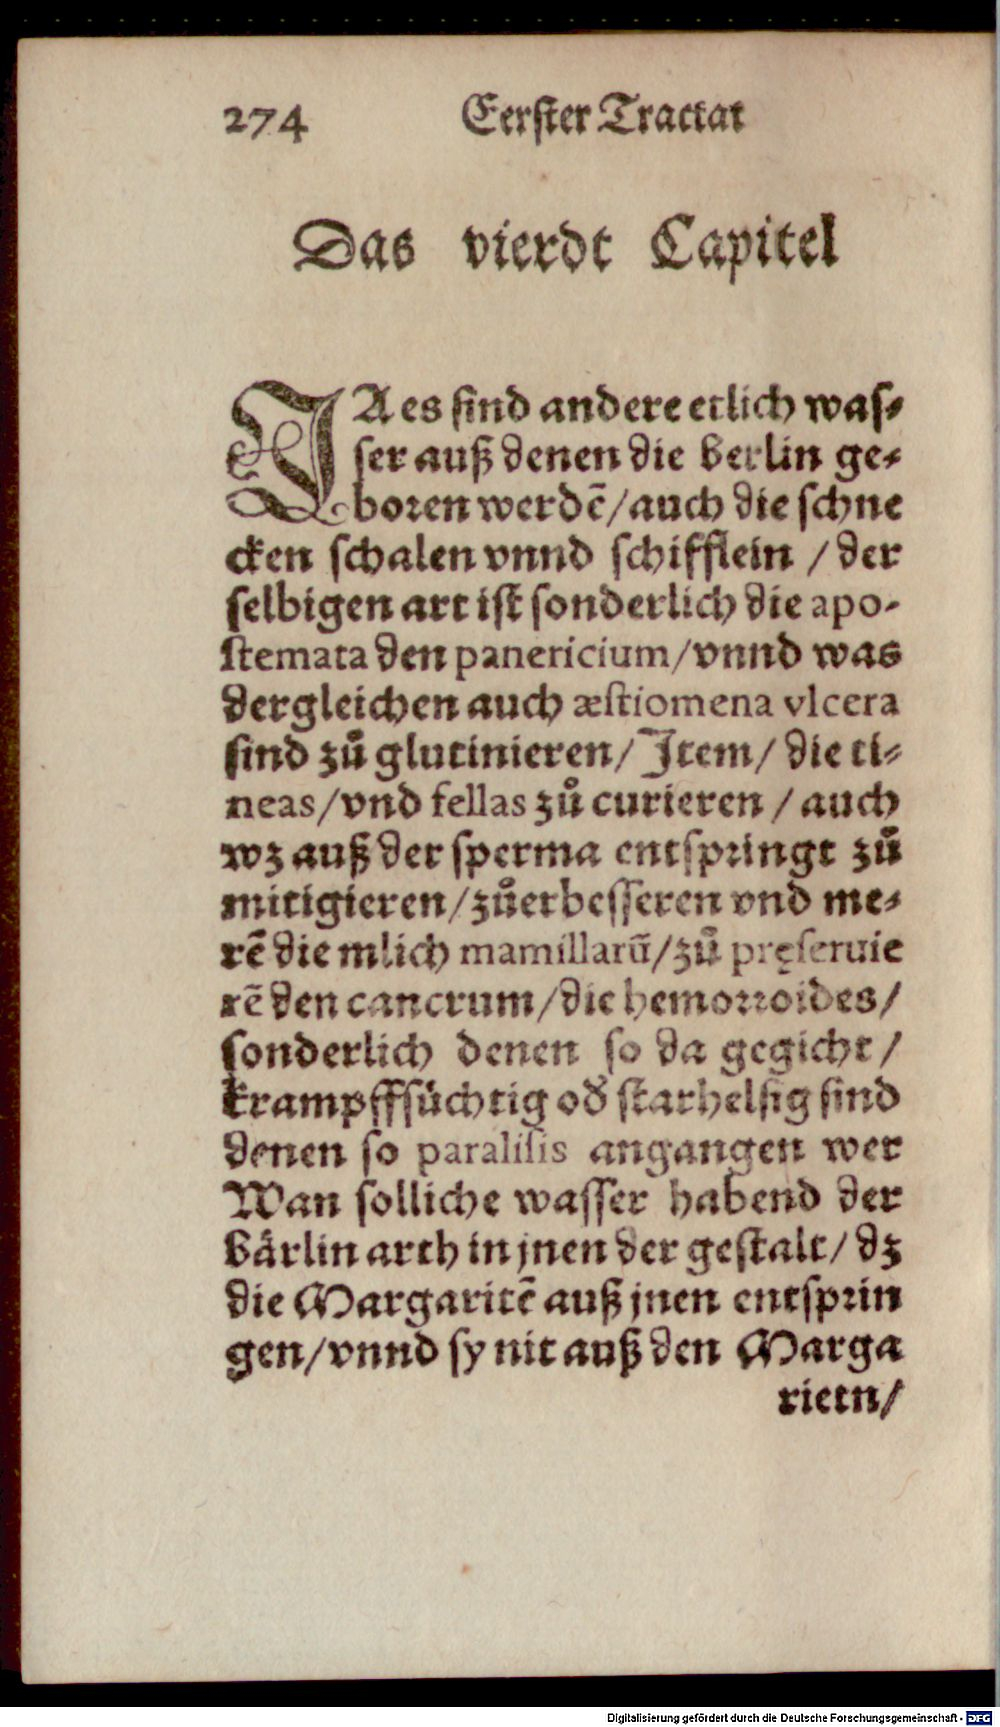 274 Eerster Tractat
Das vierdt Capitel
JA es sind andere etlich was⸗
ser auß denen die berlin ge⸗
boren werdẽ/auch die schne
cken schalen vnnd schifflein / der
selbigen art ist sonderlich die apo-
stemata den panericium/vnnd was
dergleichen auch æstiomena vlcera
sind zů glutinieren/ Item/ die ti⸗
neas/vnd fellas zů curieren / auch
wz auß der sperma entspringt zů
mitigieren/zůerbesseren vnd me⸗
rẽ die mlich mamillarũ/zů pręseruie
rẽ den cancrum/die hemorroides/
sonderlich denen so da gegicht/
krampfffsüchtig oď starhelsig sind
denen so paralisis angangen wer
Wan solliche wasser habend der
bärlin arth in jnen der gestalt/ dz
die Margaritẽ auß jnen entsprin
gen/vnnd sy nit auß den Marga
rietn/
Digitalisierung gefördert durch die Deutsche Forschungsgemeinschaft - DFG